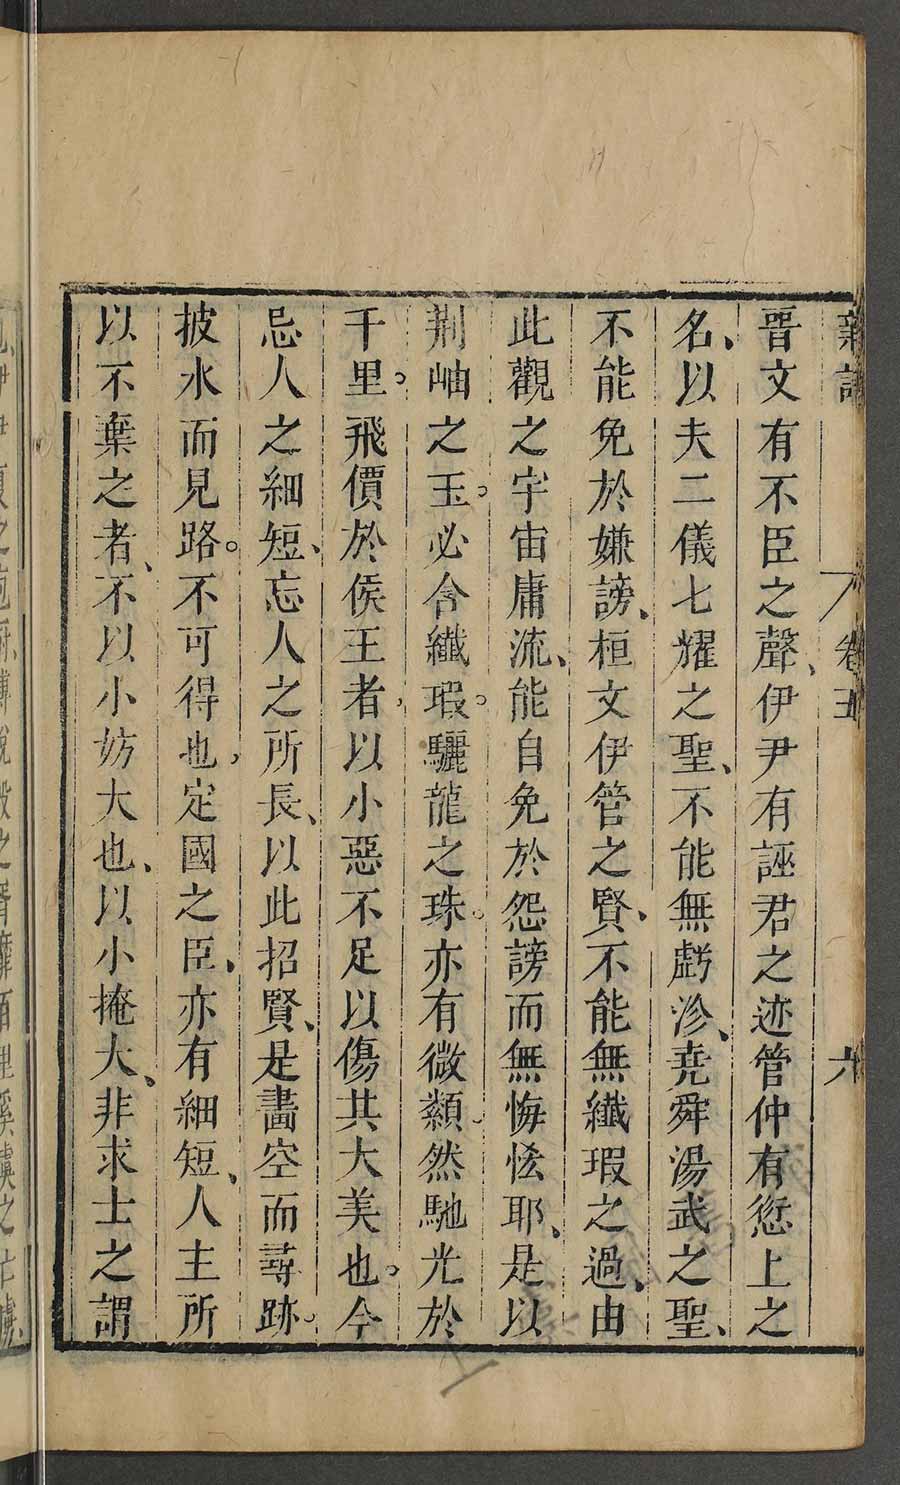 新論 卷五 六
晉文有不臣之聲、伊尹有誣君之迹管仲有愆上之
名、以夫二儀七耀之聖、不能無虧沴、堯舜湯武之聖、
不能免於嫌謗、桓文伊管之賢、不能無纖瑕之過、由
此觀之宇宙庸流、能自免於怨謗而無悔恡耶、是以
荆岫之玉。必含纖瑕。驪龍之珠。亦有微纇。然馳光於
千里。飛價於侯王者、以小惡不足以傷其大美也。今
忌人之細短、忘人之所長、以此招賢、是畵空而尋跡。
披水而見路。不可得也、定國之臣、亦有細短、人主所
以不棄之者、不以小妨大也、以小掩大、非求士之謂